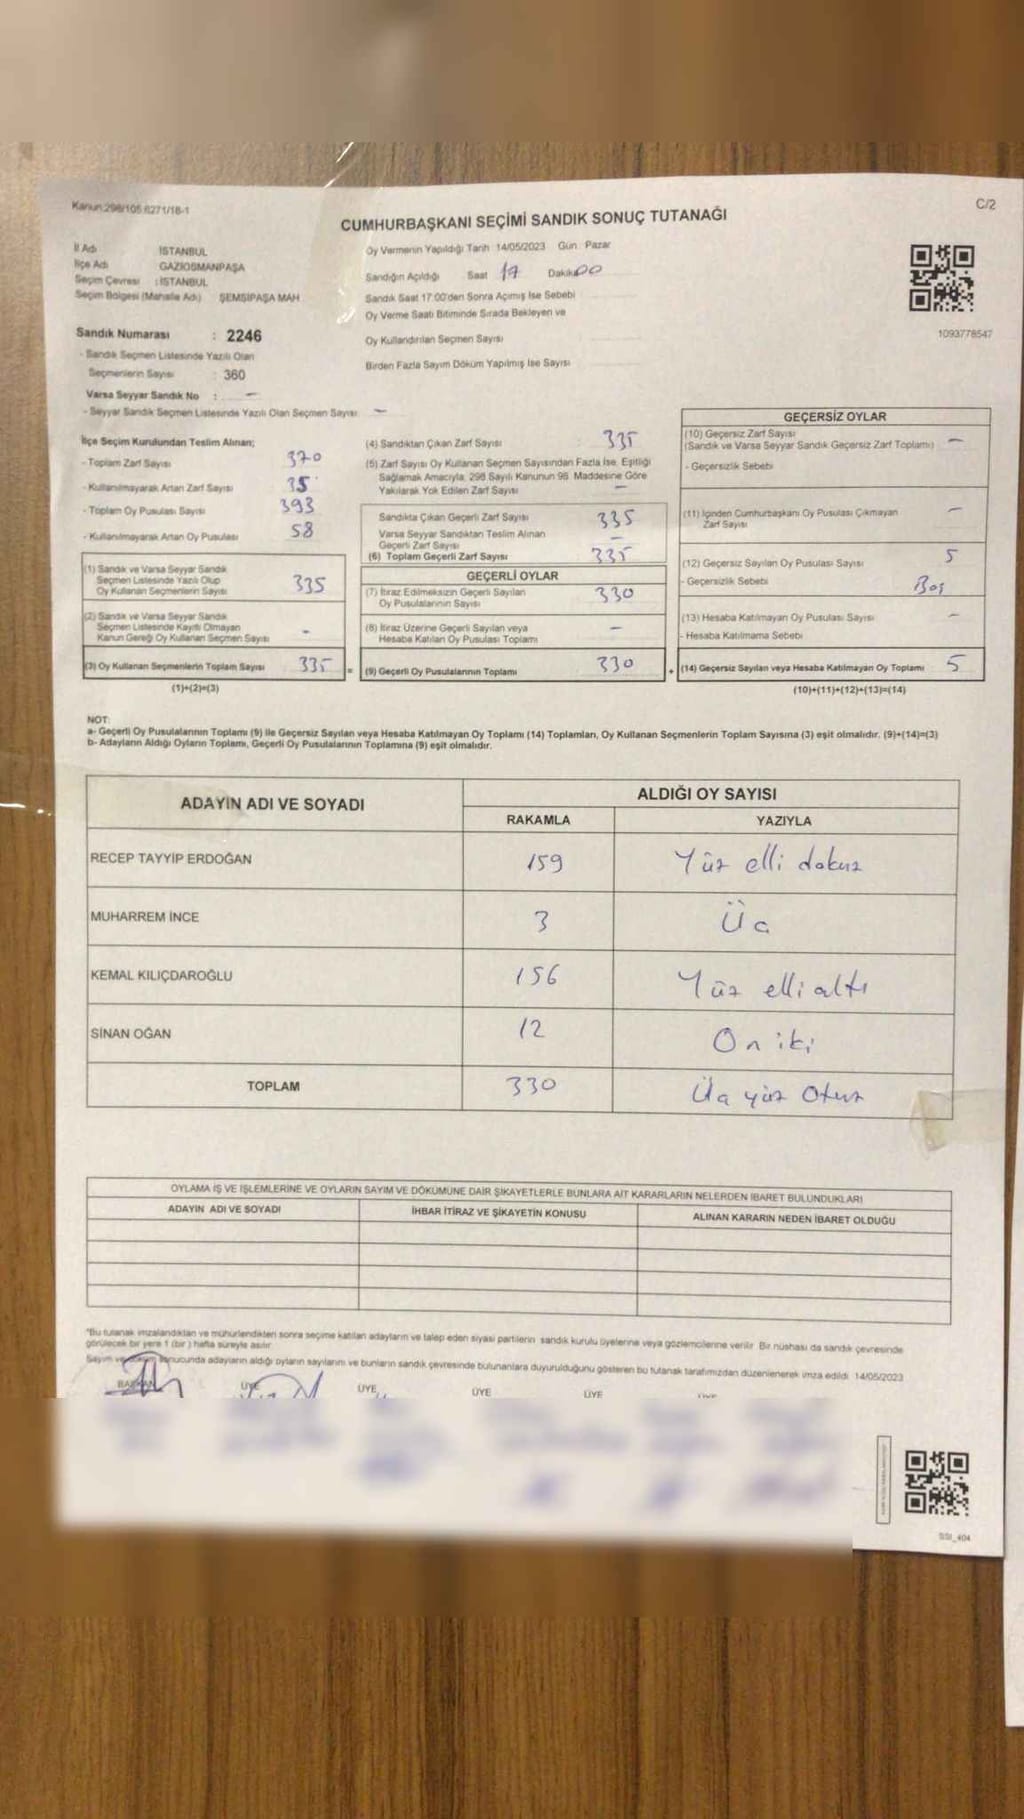 Kanun:298/105 6271/18-1
C/2
CUMHURBAŞKANI SEÇİMİ SANDIK SONUÇ TUTANAĞI
İl Adı İSTANBUL
İlçe Adı GAZİOSMANPAŞA
Seçim Çevresi : İSTANBUL
Seçim Bölgesi (Mahalle Adı) ŞEMSİPAŞA MAH
Oy Vermenin Yapıldığı Tarih 14/05/2023 Gün Pazar
Sandığın Açıldığı Saat 17 Dakika 00
Sandık Saat 17:00'den Sonra Açımış İse Sebebi
Oy Verme Saati Bitiminde Sırada Bekleyen ve
Oy Kullandırılan Seçmen Sayısı
Birden Fazla Sayım Döküm Yapılmış İse Sayısı
1093778547
Sandık Numarası : 2246
- Sandık Seçmen Listesinde Yazılı Olan
Seçmenlerin Sayısı : 360
Varsa Seyyar Sandık No : -
- Seyyar Sandık Seçmen Listesinde Yazılı Olan Seçmen Sayısı -
İlçe Seçim Kurulundan Teslim Alınan;
- Toplam Zarf Sayısı 370
- Kullanılmayarak Artan Zarf Sayısı 35
- Toplam Oy Pusulası Sayısı 393
- Kullanılmayarak Artan Oy Pusulası 58
(1) Sandık ve Varsa Seyyar Sandık
Seçmen Listesinde Yazılı Olup
Oy Kullanan Seçmenlerin Sayısı 335
(2) Sandık ve Varsa Seyyar Sandık
Seçmen Listesinde Kayıtlı Olmayan
Kanun Gereği Oy Kullanan Seçmen Sayısı -
(3) Oy Kullanan Seçmenlerin Toplam Sayısı 335 =
(1)+(2)=(3)
(4) Sandıktan Çıkan Zarf Sayısı : 335
(5) Zarf Sayısı Oy Kullanan Seçmen Sayısından Fazla İse, Eşitliği
Sağlamak Amacıyla, 298 Sayılı Kanunun 98. Maddesine Göre
Yakılarak Yok Edilen Zarf Sayısı -
Sandıkta Çıkan Geçerli Zarf Sayısı 335
Varsa Seyyar Sandıktan Teslim Alınan
Geçerli Zarf Sayısı -
(6) Toplam Geçerli Zarf Sayısı 335
GEÇERLİ OYLAR
(7) İtiraz Edilmeksizin Geçerli Sayılan
Oy Pusulalarının Sayısı 330
(8) İtiraz Üzerine Geçerli Sayılan veya
Hesaba Katılan Oy Pusulası Toplamı -
(9) Geçerli Oy Pusulalarının Toplamı 330 +
GEÇERSİZ OYLAR
(10) Geçersiz Zarf Sayısı
(Sandık ve Varsa Seyyar Sandık Geçersiz Zarf Toplamı) -
- Geçersizlik Sebebi
(11) İçinden Cumhurbaşkanı Oy Pusulası Çıkmayan
Zarf Sayısı -
(12) Geçersiz Sayılan Oy Pusulası Sayısı 5
- Geçersizlik Sebebi Boş
(13) Hesaba Katılmayan Oy Pusulası Sayısı -
- Hesaba Katılmama Sebebi
(14) Geçersiz Sayılan veya Hesaba Katılmayan Oy Toplamı 5
(10)+(11)+(12)+(13)=(14)
NOT:
a- Geçerli Oy Pusulalarının Toplamı (9) ile Geçersiz Sayılan veya Hesaba Katılmayan Oy Toplamı (14) Toplamları, Oy Kullanan Seçmenlerin Toplam Sayısına (3) eşit olmalıdır. (9)+(14)=(3)
b- Adayların Aldığı Oyların Toplamı, Geçerli Oy Pusulalarının Toplamına (9) eşit olmalıdır.
ADAYIN ADI VE SOYADI ALDIĞI OY SAYISI
RAKAMLA YAZIYLA
RECEP TAYYİP ERDOĞAN 159 Yüz elli dokuz
MUHARREM İNCE 3 Üç
KEMAL KILIÇDAROĞLU 156 Yüz elli altı
SİNAN OĞAN 12 On iki
TOPLAM 330 Üç yüz Otuz
OYLAMA İŞ VE İŞLEMLERİNE VE OYLARIN SAYIM VE DÖKÜMÜNE DAİR ŞİKAYETLERLE BUNLARA AİT KARARLARIN NELERDEN İBARET BULUNDUKLARI
ADAYIN ADI VE SOYADI İHBAR İTİRAZ VE ŞİKAYETİN KONUSU ALINAN KARARIN NEDEN İBARET OLDUĞU
*Bu tutanak imzalandıktan ve mühürlendikten sonra seçime katılan adayların ve talep eden siyasi partilerin sandık kurulu üyelerine veya gözlemcilerine verilir. Bir nüshası da sandık çevresinde
görülecek bir yere 1 (bir) hafta süreyle asılır.
Sayım ve sonucunda adayların aldığı oyların sayılarını ve bunların sandık çevresinde bulunanlara duyurulduğunu gösteren bu tutanak tarafımızdan düzenlenerek imza edildi. 14/05/2023
BAŞKAN ÜYE ÜYE ÜYE ÜYE
SSI_404